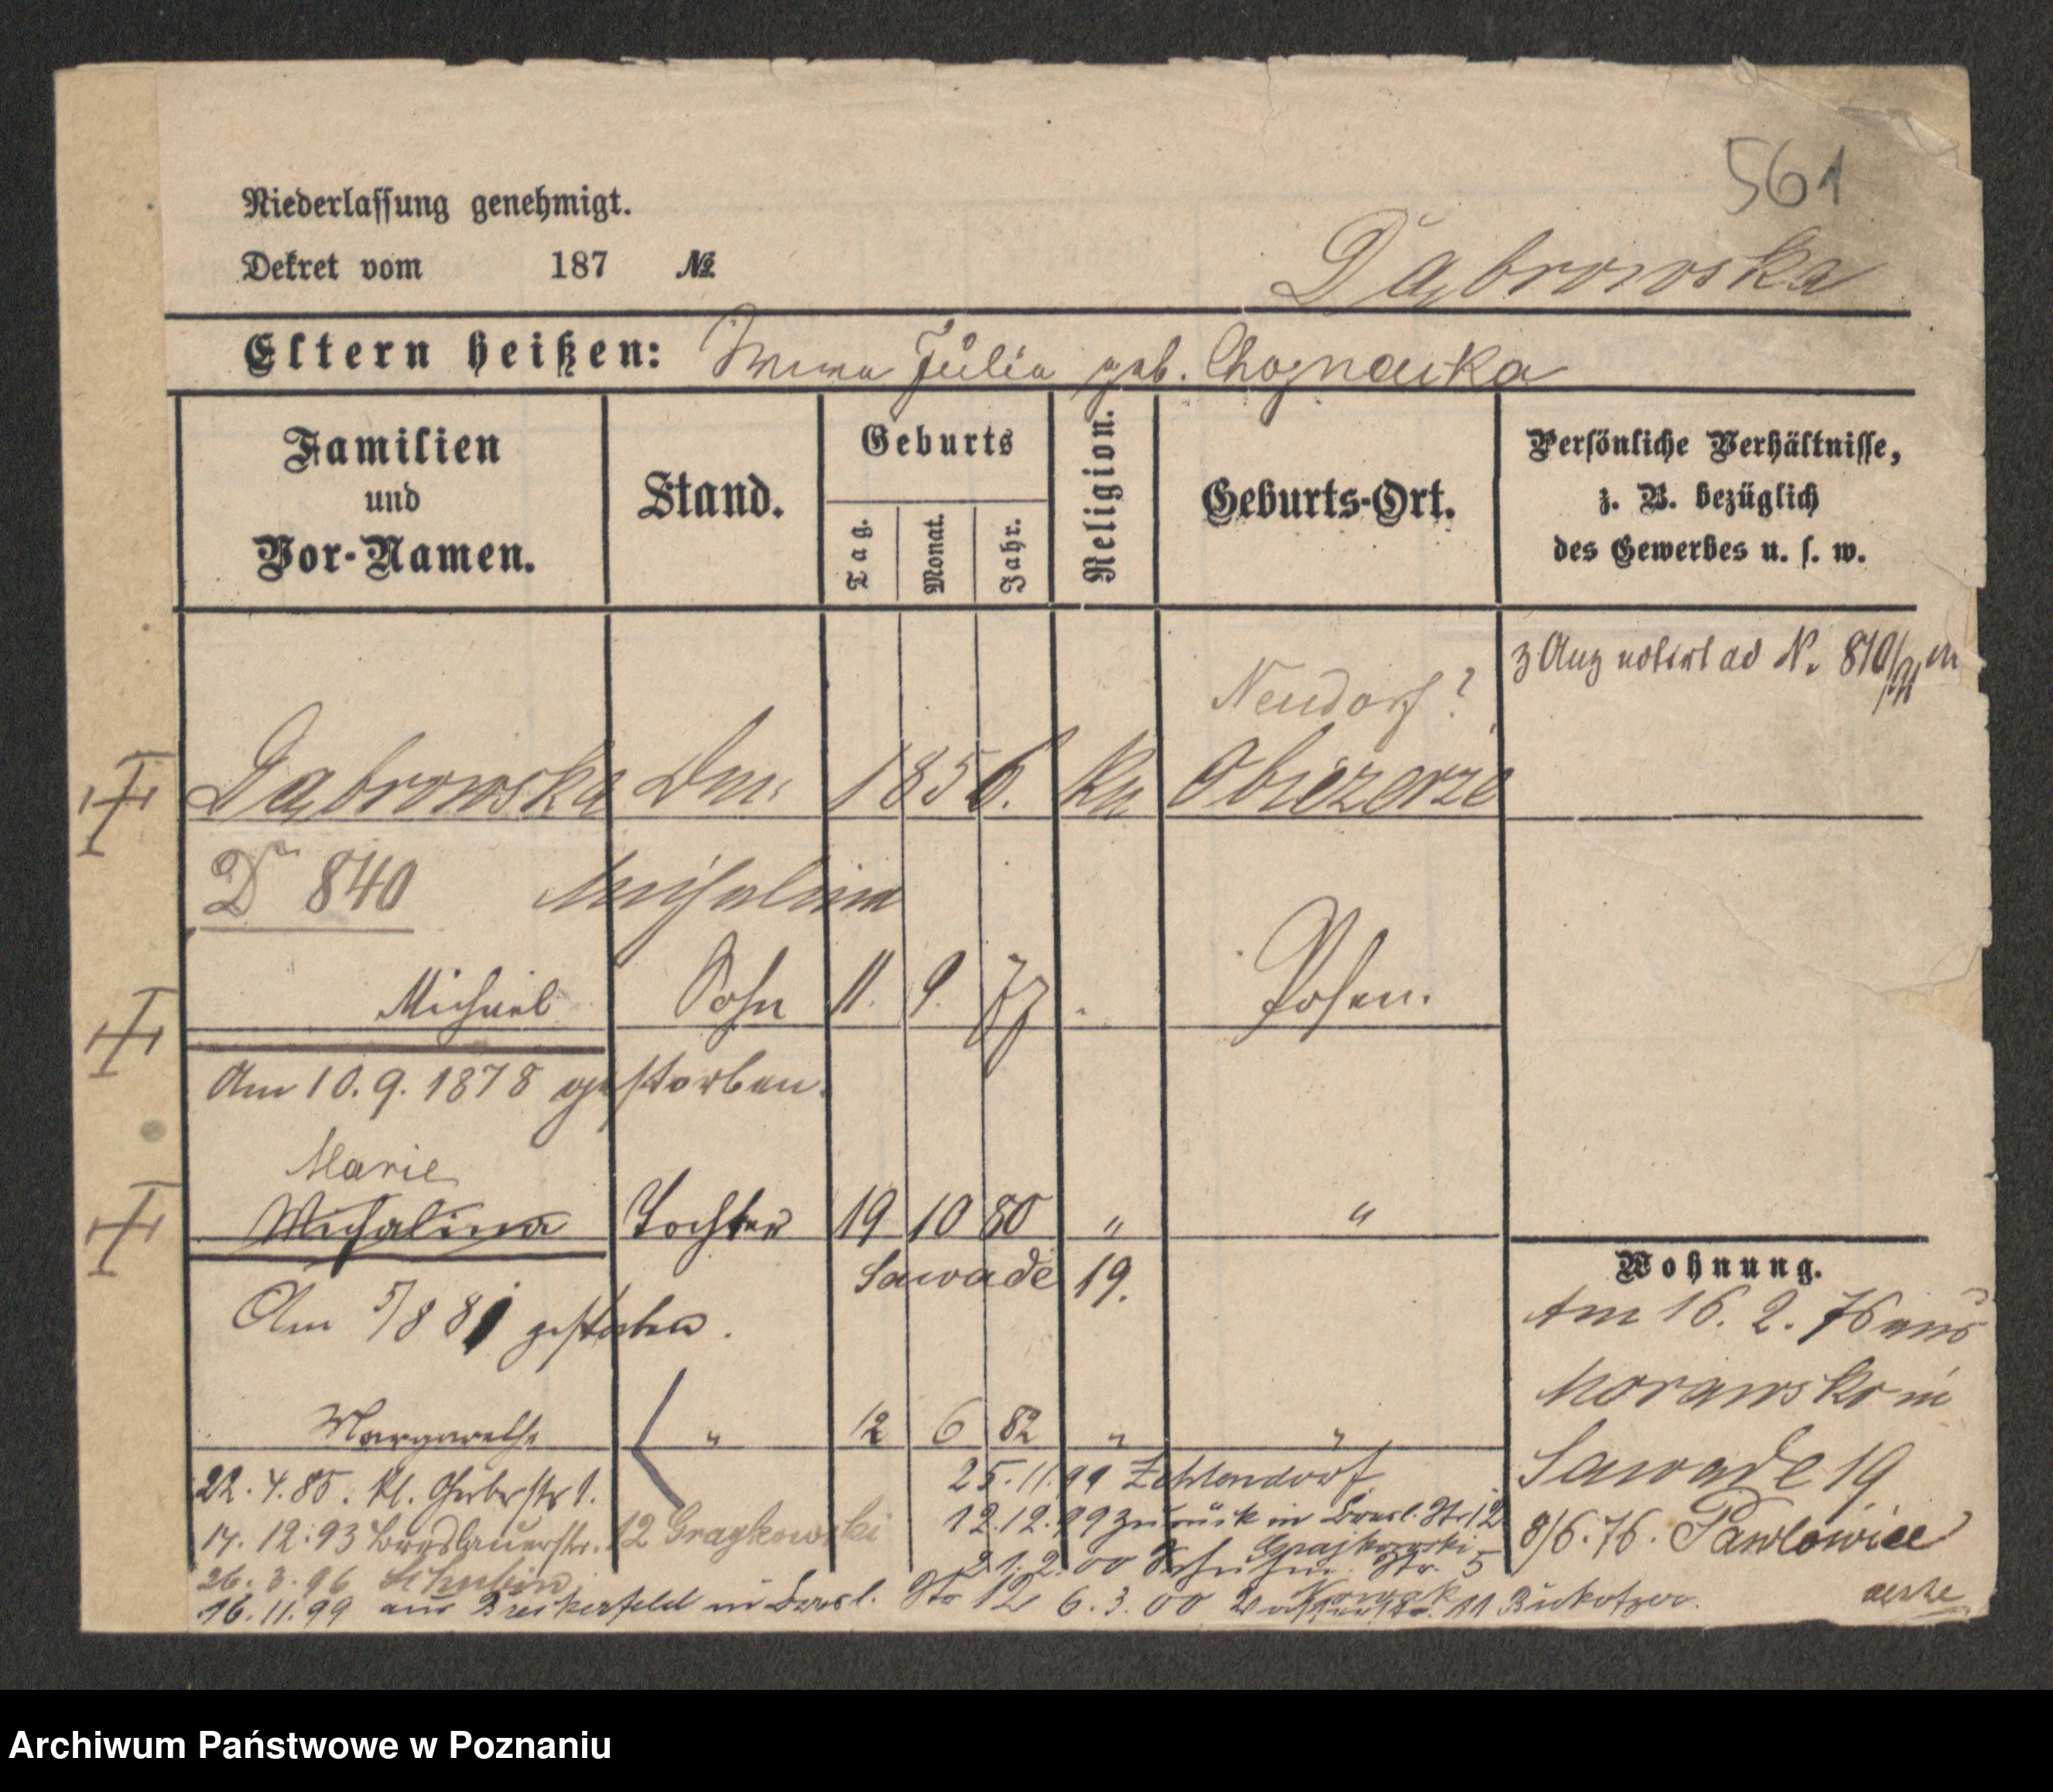 561
Niederlassung genehmigt.
Dekret vom 187 №
Dąbrowska
Eltern heißen: Julia geb. Chojnacka
Familien und Vor-Namen.
Stand.
Geburts
Tag. Monat. Jahr.
Religion.
Geburts-Ort.
Persönliche Verhältnisse, z. B. bezüglich des Gewerbes u. s. w.
z Ang notirt ad N. 810/91
Neudorf?
Dąbrowska 1856. Obiezerze
D 840 Michalina
Michael Sohn 11. 9. 77 Posen.
Am 10. 9. 1878 gestorben.
Marie
Michalina Tochter 19 10 80 " "
Sawade 19.
Am 5/8 81 gestorben.
Margarethe " 12 6 82 " "
22. 4. 85. kl. Gerberstr 1.
14. 12. 93 Breslauerstr. 12 Graykowski
26. 3. 96 Schubin
16. 11. 99 aus in Bresl. Str 12
25. 11. 99 Zehlendorf
12. 12. 99 zurück in Bresl. Str 12
Grajkowski
21. 2. 00 Str. 5
Nowak
6. 3. 00 11
Wohnung.
Am 16. 2. 76 aus
Morawsko in
Sawade 19
8/6. 76. Pawlowice